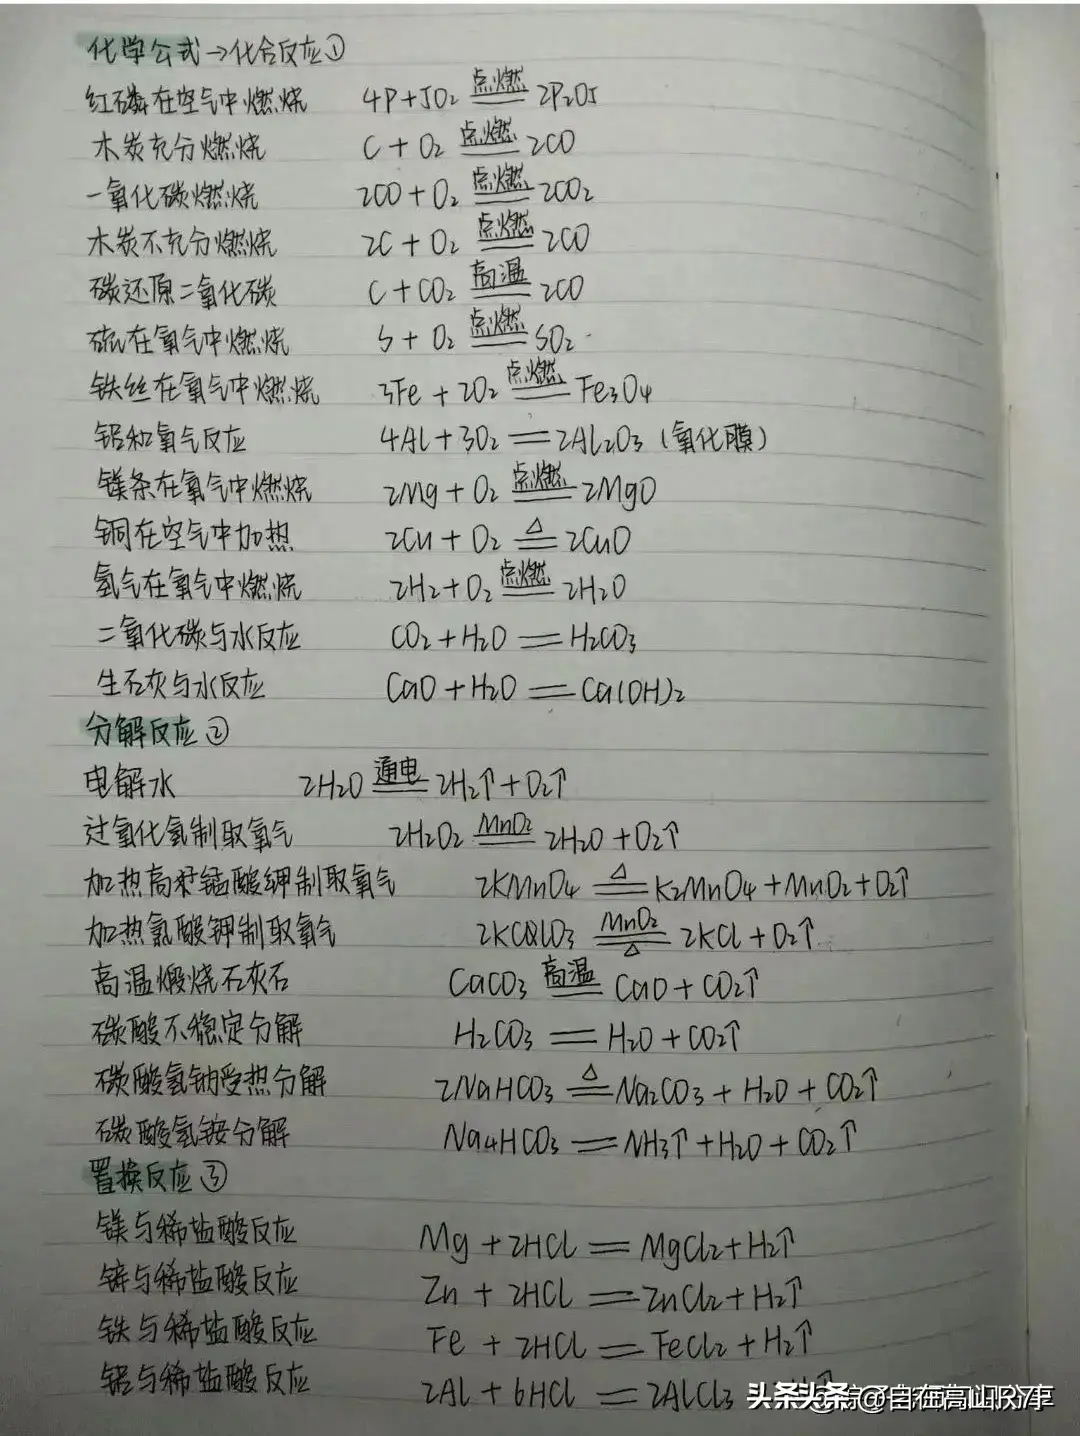 化学公式→化合反应①
红磷在空气中燃烧 4P+5O₂ 点燃══ 2P₂O₅
木炭充分燃烧 C+O₂ 点燃══ 2CO
一氧化碳燃烧 2CO+O₂ 点燃══ 2CO₂
木炭不充分燃烧 2C+O₂ 点燃══ 2CO
碳还原二氧化碳 C+CO₂ 高温══ 2CO
硫在氧气中燃烧 S+O₂ 点燃══ SO₂
铁丝在氧气中燃烧 3Fe+2O₂ 点燃══ Fe₃O₄
铝和氧气反应 4Al+3O₂══2Al₂O₃(氧化膜)
镁条在氧气中燃烧 2Mg+O₂ 点燃══ 2MgO
铜在空气中加热 2Cu+O₂ △══ 2CuO
氢气在氧气中燃烧 2H₂+O₂ 点燃══ 2H₂O
二氧化碳与水反应 CO₂+H₂O══H₂CO₃
生石灰与水反应 CaO+H₂O══Ca(OH)₂
分解反应②
电解水 2H₂O 通电══ 2H₂↑+O₂↑
过氧化氢制取氧气 2H₂O₂ MnO₂══ 2H₂O+O₂↑
加热高锰酸钾制取氧气 2KMnO₄ △══ K₂MnO₄+MnO₂+O₂↑
加热氯酸钾制取氧气 MnO₂══△ 2KCl+O₂↑
高温煅烧石灰石 CaCO₃ 高温══ CaO+CO₂↑
碳酸不稳定分解 H₂CO₃══H₂O+CO₂↑
碳酸氢钠受热分解 2NaHCO₃ △══ Na₂CO₃+H₂O+CO₂↑
碳酸氢铵分解 Na4HCO₃══NH₃↑+H₂O+CO₂↑
置换反应③
镁与稀盐酸反应 Mg+2HCl══MgCl₂+H₂↑
锌与稀盐酸反应 Zn+2HCl══ZnCl₂+H₂↑
铁与稀盐酸反应 Fe+2HCl══FeCl₂+H₂↑
铝与稀盐酸反应 2Al+6HCl══2AlCl₃
头条@自在高山R7F